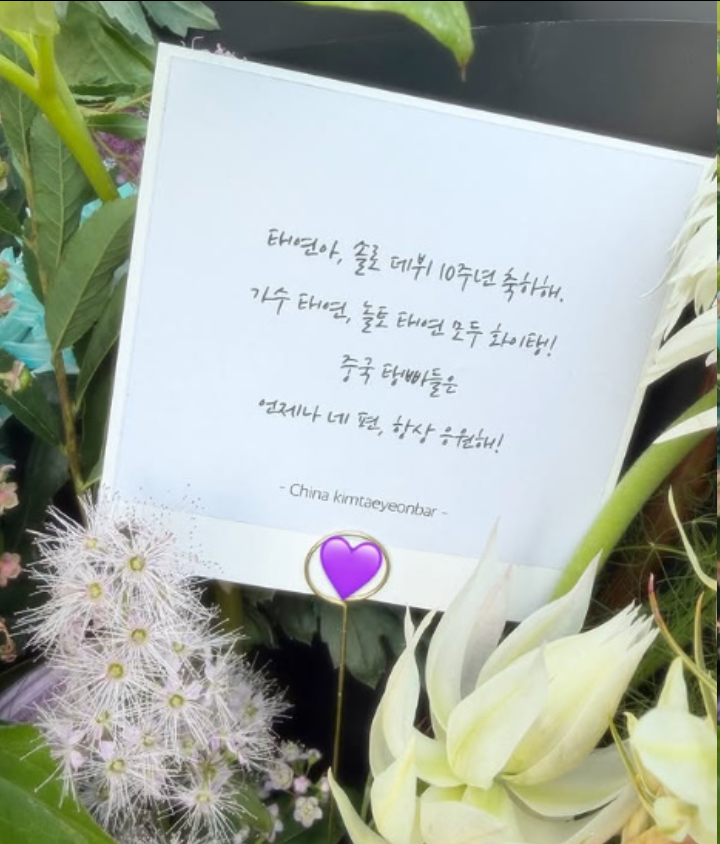 태연아, 솔로 데뷔 10주년 축하해.
가수 태연, 놀토 태연 모두 화이탱!
중국 탱빠들은
언제나 네 편, 항상 응원해!
- China kimtaeyeonbar -